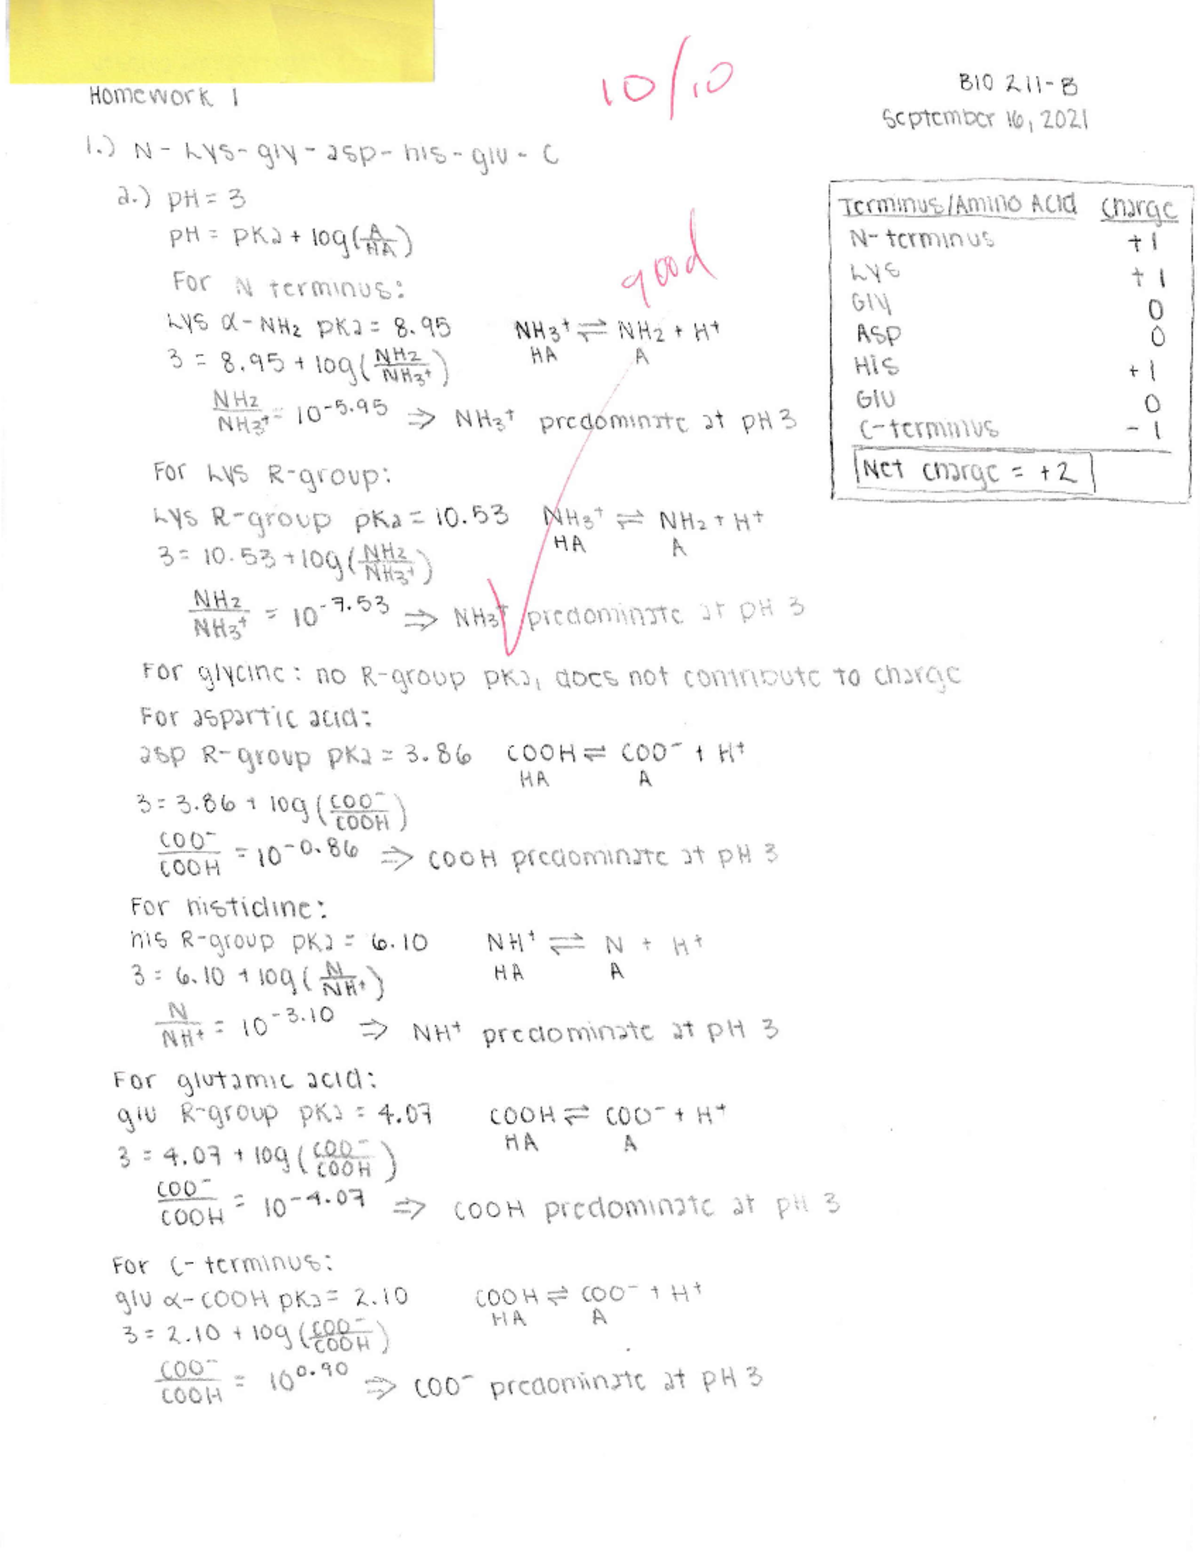 Homework 1
10/10
BIO 211-B
September 16, 2021
1.) N - Lys - gly - asp - his - glu - C
2.) pH = 3
pH = pKa + log(A/HA)
good
For N terminus:
Lys α-NH2 pKa = 8.95 NH3+ ⇌ NH2 + H+
HA A
3 = 8.95 + log(NH2/NH3+)
NH2/NH3+ = 10^-5.95 ⇒ NH3+ predominate at pH 3
For Lys R-group:
Lys R-group pKa = 10.53 NH3+ ⇌ NH2 + H+
HA A
3 = 10.53 + log(NH2/NH3+)
NH2/NH3+ = 10^-7.53 ⇒ NH3+ predominate at pH 3
For glycine: no R-group pKa, does not contribute to charge
For aspartic acid:
asp R-group pKa = 3.86 COOH ⇌ COO- + H+
HA A
3 = 3.86 + log(COO-/COOH)
COO-/COOH = 10^-0.86 ⇒ COOH predominate at pH 3
For histidine:
his R-group pKa = 6.10 NH+ ⇌ N + H+
HA A
3 = 6.10 + log(N/NH+)
N/NH+ = 10^-3.10 ⇒ NH+ predominate at pH 3
For glutamic acid:
glu R-group pKa = 4.07 COOH ⇌ COO- + H+
HA A
3 = 4.07 + log(COO-/COOH)
COO-/COOH = 10^-4.07 ⇒ COOH predominate at pH 3
For C-terminus:
glu α-COOH pKa = 2.10 COOH ⇌ COO- + H+
HA A
3 = 2.10 + log(COO-/COOH)
COO-/COOH = 10^0.90 ⇒ COO- predominate at pH 3
Terminus/Amino Acid Charge
N-terminus +1
Lys +1
Gly 0
Asp 0
His +1
Glu 0
C-terminus -1
Net charge = +2